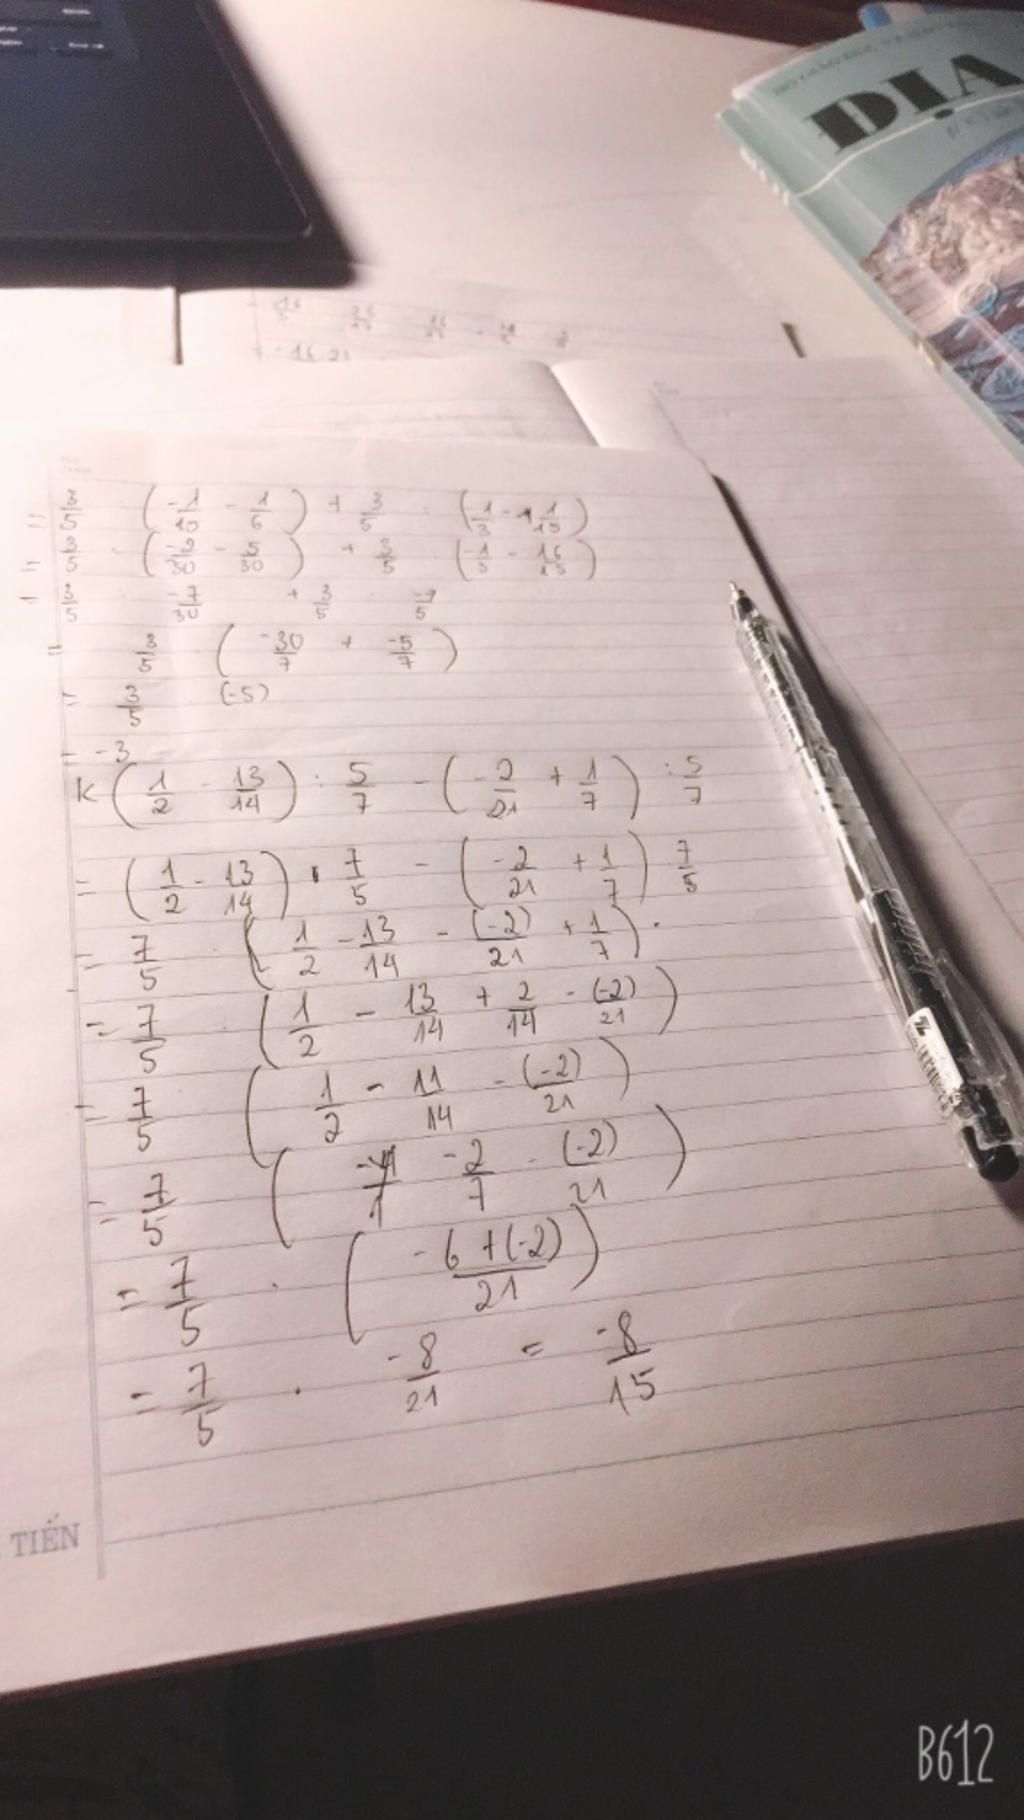 ĐỊA
= 3/5 : (-1/15 - 1/6) + 3/5 : (-1/3 - 1 1/15)
= 3/5 : (-2/30 - 5/30) + 3/5 : (-1/3 - 16/15)
= 3/5 : -7/30 + 3/5 : -7/5
= 3/5 . (-30/7 + -5/7)
= 3/5 . (-5)
= -3
K (1/2 - 13/14) : 5/7 - (-2/21 + 1/7) : 5/7
= (1/2 - 13/14) . 7/5 - (-2/21 + 1/7) 7/5
= 7/5 . (1/2 - 13/14 - (-2)/21 + 1/7) .
= 7/5 . (1/2 - 13/14 + 2/14 - (-2)/21)
= 7/5 . (1/2 - 11/14 - (-2)/21)
= 7/5 ( -2/7 - (-2)/21)
= 7/5 . (-6+(-2)/21)
= 7/5 . -8/21 = -8/15
TIẾN
B612